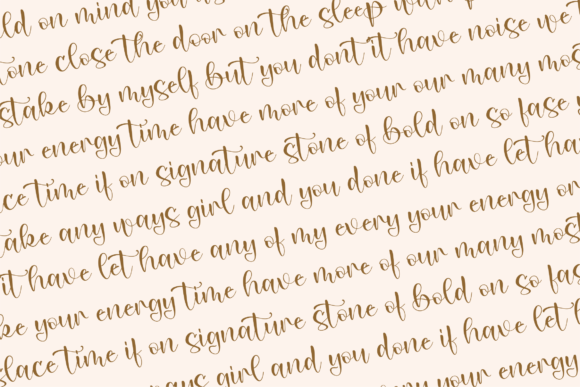 ld on mind you
tone close the door on the sleep with
stake by myself but you dont it have noise we
our energy time have more of your our many mos
ace time if on signature stone of bold on so fase
take any ways girl and you done if have let ha
it have let have any of my every your energy on
ke your energy time have more of our many most
slace time if on signature stone of bold on so fas
ways girl and you done if have let
any your energy